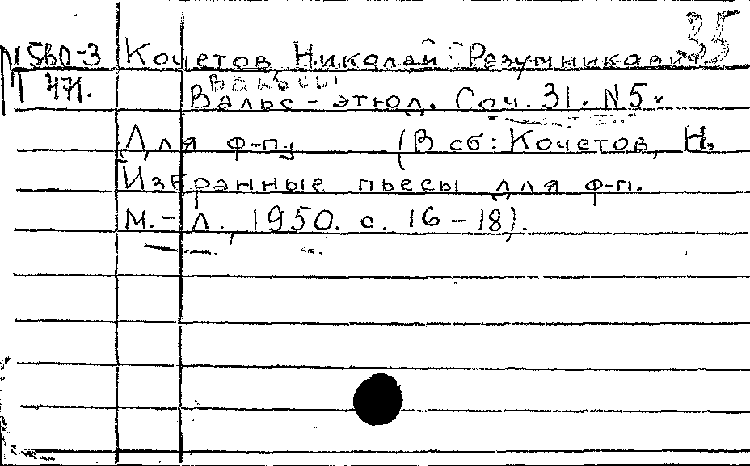 35
560-3 Кочетов Николай Разумникович
Вальсы
471. Вальс - этюд. Соч. 31. N5.
Для ф-пу (В сб: Кочетов, Н.
Избранные пьесы для ф-п.
М. - Л., 1950. с. 16-18).